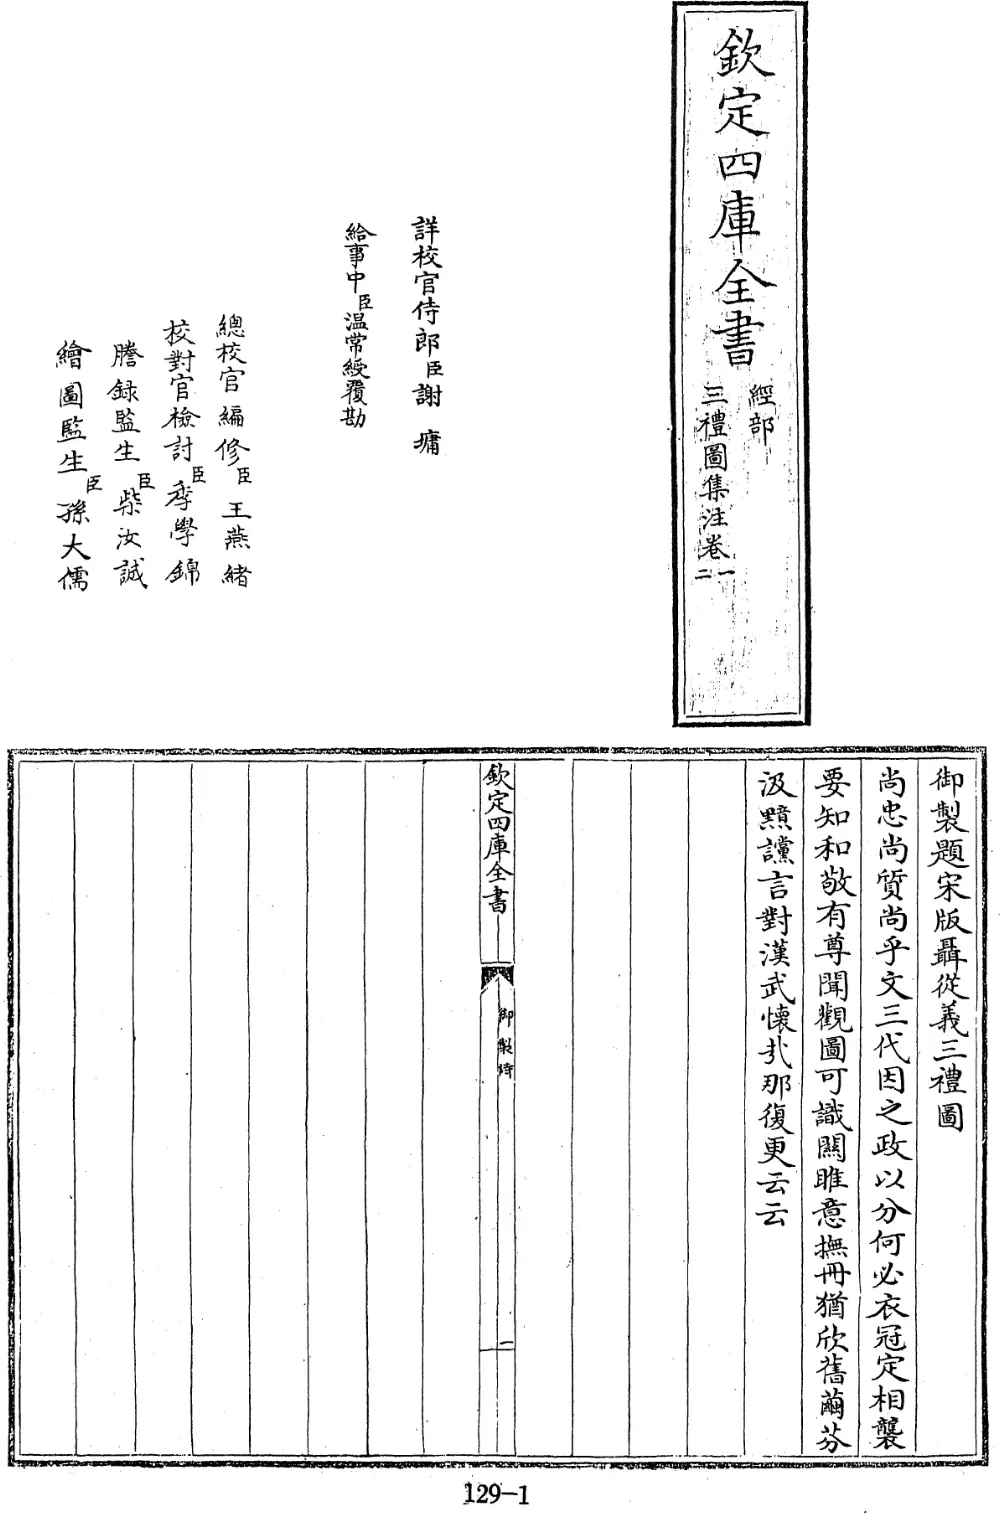 欽定四庫全書
經部
三禮圖集注卷一二
詳校官侍郎臣謝墉
給事中臣溫常綬覆勘
總校官編修臣王燕緒
校對官檢討臣季學錦
謄録監生臣柴汝誠
繪圖監生臣孫大儒
御製題宋版聶從義三禮圖
尚忠尚質尚乎文三代因之政以分何必衣冠定相襲
要知和敬有尊聞觀圖可識關雎意撫冊猶欣舊繭芬
汲黯讜言對漢武懷哉那復更云云
欽定四庫全書
御製詩
一
129-1